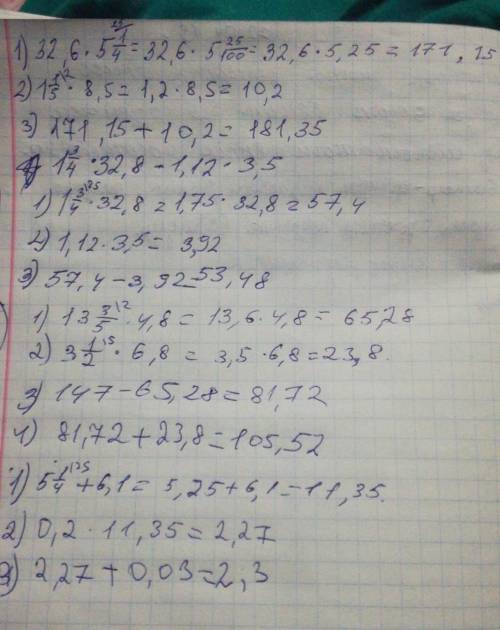 1) 32,6 · 5 1/4 = 32,6 · 5 25/100 = 32,6 · 5,25 = 171,15
2) 1 1/5 · 8,5 = 1,2 · 8,5 = 10,2
3) 171,15 + 10,2 = 181,35
1 3/4 · 32,8 - 1,12 · 3,5
1) 1 3/4 · 32,8 = 1,75 · 32,8 = 57,4
2) 1,12 · 3,5 = 3,92
3) 57,4 - 3,92 = 53,48
1) 13 3/5 · 4,8 = 13,6 · 4,8 = 65,28
2) 3 1/2 · 6,8 = 3,5 · 6,8 = 23,8.
3) 147 - 65,28 = 81,72
4) 81,72 + 23,8 = 105,52
1) 5 1/4 + 6,1 = 5,25 + 6,1 = 11,35.
2) 0,2 · 11,35 = 2,27
3) 2,27 + 0,03 = 2,3